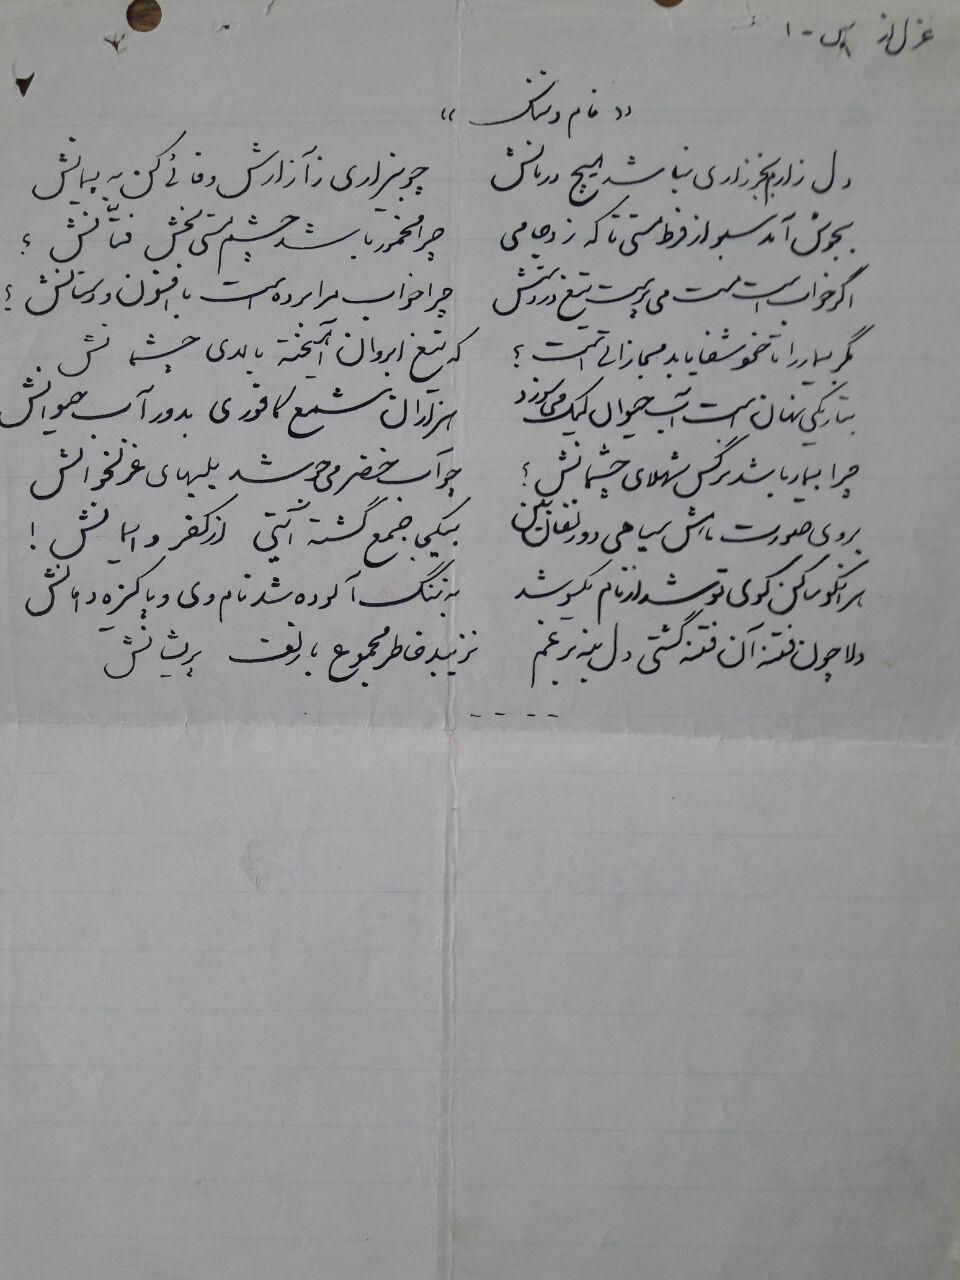 غزل از س - ا
« نام و ننگ »
دل زارم بجز زاری نباشد هیچ درمانش چو بیزاری ز آزارش وفائی کن به پیمانش
بجوش آمد سبو از فرط مستی تا که زد جامی چرا مخمور باشد چشم مستی بخش فتانش ؟
اگر خوابست مست می پرست تیغ در دستش چرا خواب مرا برده است با افسون و دستانش ؟
مگر بیمار را شفا یابد که تیغ ابروان آهیخته بالای چشمانش
بتاریکی نهان است آب حیوان لیک هزاران شمع کافوری بدور آب حیوانش
چرا بیمار باشد نرگس شهلای چشمانش ؟ چو آب خضر می جوشد بلبهای غزلخوانش
بروی صورت ماهش سیاهی دو زلفان بین بیکجا جمع گشته آیتی از کفر و ایمانش !
هر آنکو ساکن کوی تو شد از نام یکسو شد به ننگ آلوده شد نام وی و پاکیزه دامانش
دلا چون فتنه آن فتنه گشتی دل بنه بر غم نزیبد خاطر مجموع با زلف پریشانش